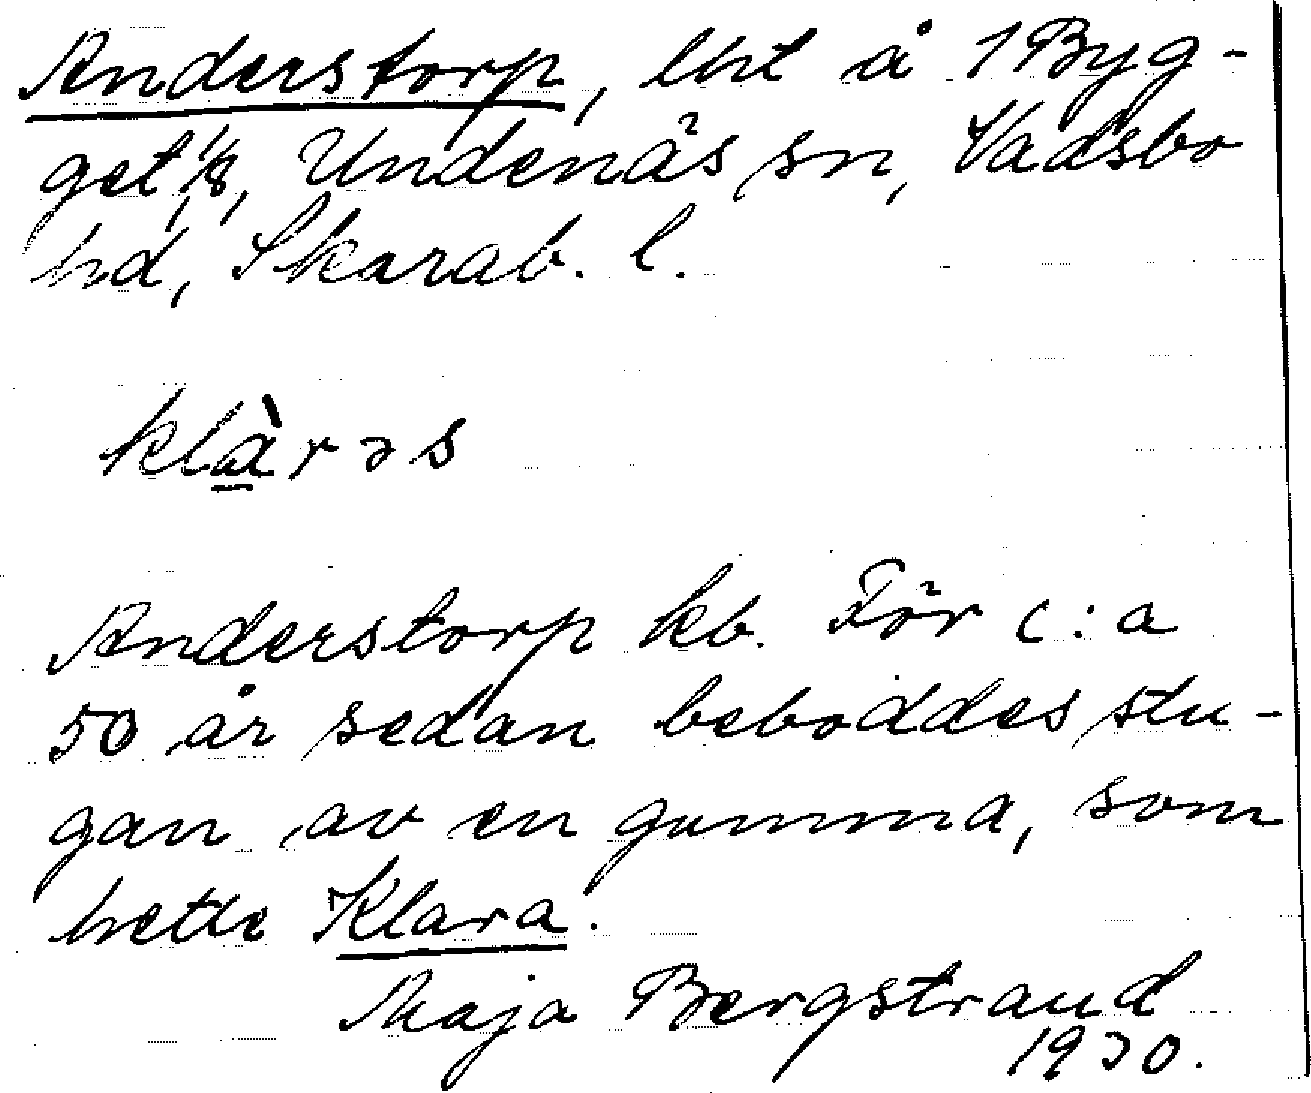 Anderstorp, lht å 1 Byg-
get 1/8, Undenäs sn, Vadsbo
hd, Skarab. l.
klàrəs
Anderstorp kb. För c:a
50 år sedan beboddes stu-
gan av en gumma, som
hette Klara.
Maja Bergstrand
1930.